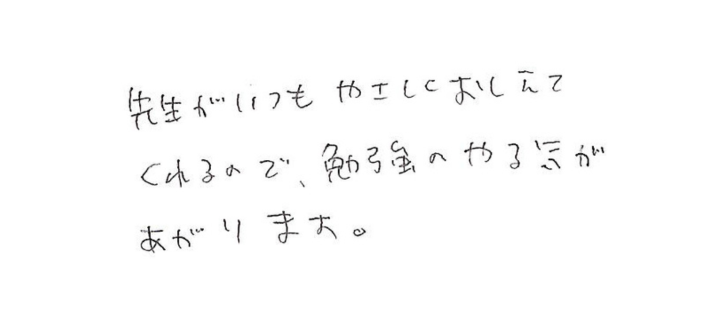 先生がいつも やさしく おしえて
くれるので、勉強の やる気が
あがります。